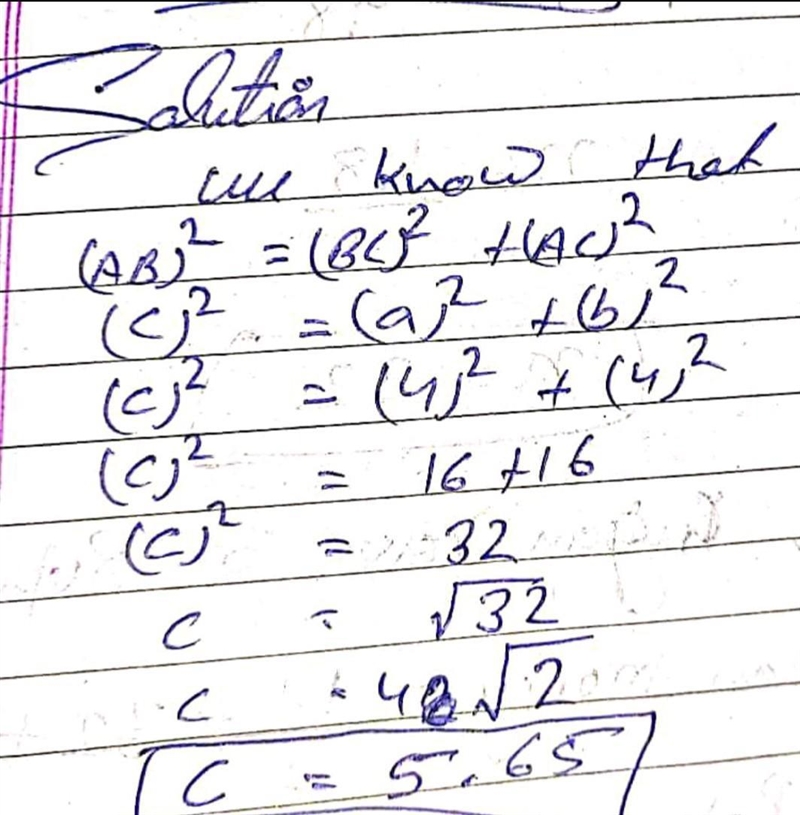 Solution
we know that
(AB)² = (BC)² + (AC)²
(C)² = (a)² + (b)²
(C)² = (4)² + (4)²
(C)² = 16 + 16
(C)² = 32
C = √32
C = 4√2
C = 5.65